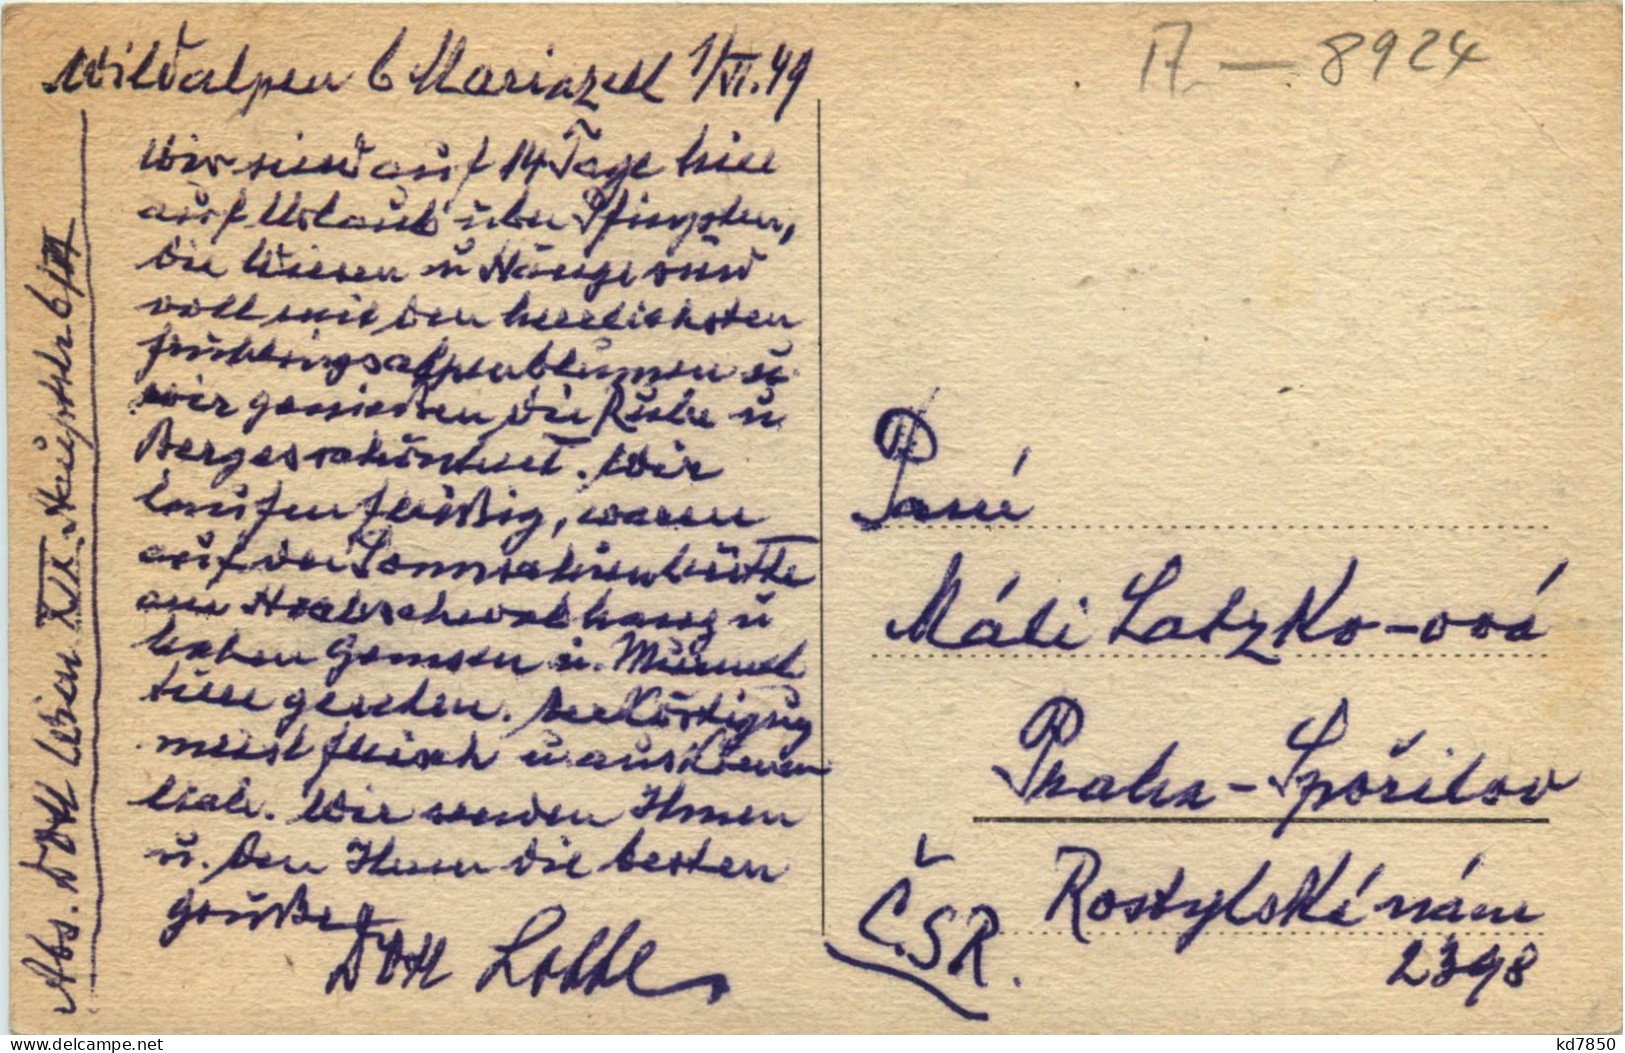 Wildalpen b Mariazell 1/VI.49
Wir sind auf 14 Tage hier
auf Urlaub über Pfingsten,
die Wiesen u Hänge sind
voll mit den herrlichsten
Frühlingsalpenblumen u
wir genießen die Ruhe u
Bergesschönheit. Wir
laufen fleißig, waren
auf der Sonnschienhütte
am Hochschwabhang u
haben Gemsen u. Murmel
tiere gesehen. Verköstigung
meist Fleisch u auskömm
lich. Wir senden Ihnen
u. den Ihren die besten
Grüße
Dott Lotte
Abs. Dott Wien XIX. Hauptstr 6/II
17 — 8924
Paní
Máli Latzko-ová
Praha-Spořilov
Rostylské nám
2398
Č.SR.
delcampe.net
kd7850